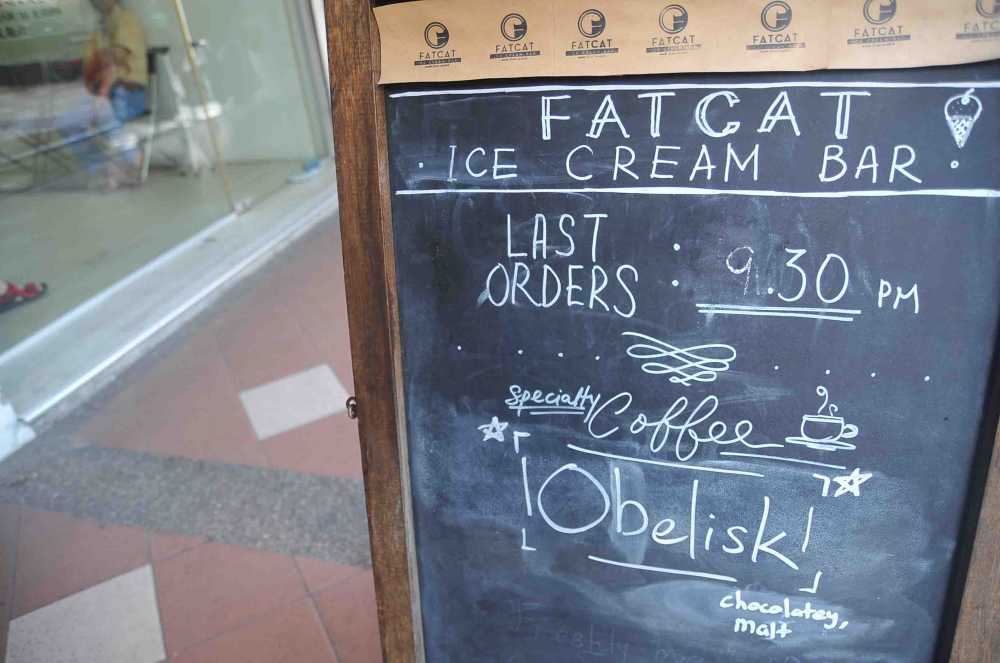 FATCAT FATCAT FATCAT FATCAT FATCAT FATCAT
FATCAT
ICE CREAM BAR
LAST
ORDERS : 9.30 PM
Specialty Coffee
Obelisk
chocolatey,
malt